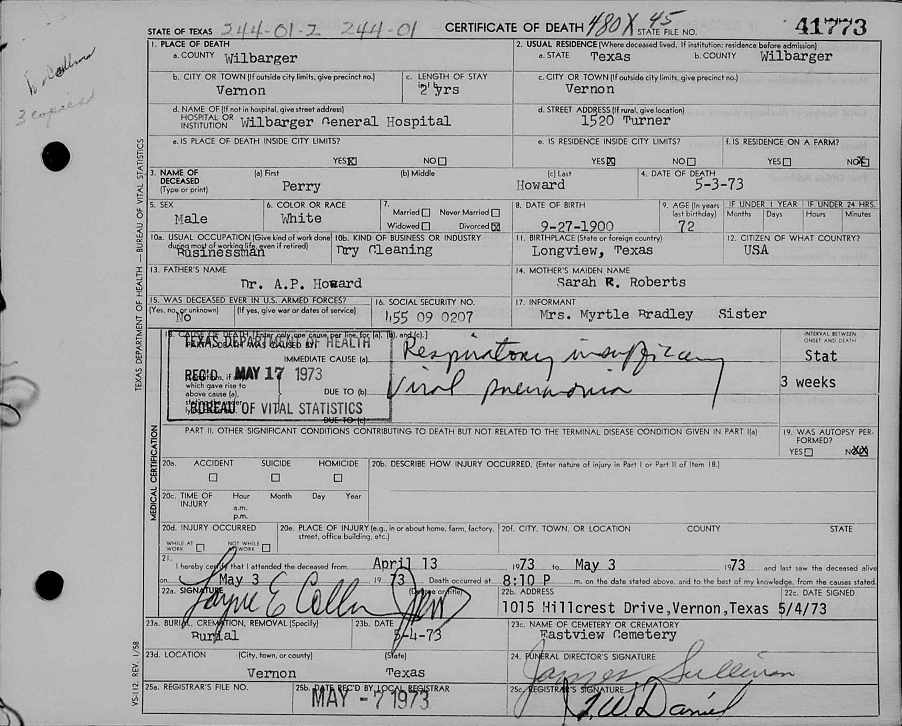 STATE OF TEXAS 244-01-2 244-01 CERTIFICATE OF DEATH 480X 45 STATE FILE NO. 41773
3 copies
TEXAS DEPARTMENT OF HEALTH — BUREAU OF VITAL STATISTICS
VS-112, REV. 1/58
1. PLACE OF DEATH
a. COUNTY Wilbarger
2. USUAL RESIDENCE (Where deceased lived. If institution: residence before admission)
a. STATE Texas b. COUNTY Wilbarger
b. CITY OR TOWN (If outside city limits, give precinct no.)
Vernon
c. LENGTH OF STAY
2 yrs
c. CITY OR TOWN (If outside city limits, give precinct no.)
Vernon
d. NAME OF (If not in hospital, give street address)
HOSPITAL OR
INSTITUTION Wilbarger General Hospital
d. STREET ADDRESS (If rural, give location)
1520 Turner
e. IS PLACE OF DEATH INSIDE CITY LIMITS?
YES X NO
e. IS RESIDENCE INSIDE CITY LIMITS?
YES X NO
f. IS RESIDENCE ON A FARM?
YES NO X
3. NAME OF
DECEASED
(Type or print)
(a) First (b) Middle (c) Last
Perry Howard
4. DATE OF DEATH
5-3-73
5. SEX
Male
6. COLOR OR RACE
White
7.
Married Never Married
Widowed Divorced X
8. DATE OF BIRTH
9-27-1900
9. AGE (In years
last birthday)
72
IF UNDER 1 YEAR IF UNDER 24 HRS.
Months Days Hours Minutes
10a. USUAL OCCUPATION (Give kind of work done
during most of working life, even if retired)
Businessman
10b. KIND OF BUSINESS OR INDUSTRY
Dry Cleaning
11. BIRTHPLACE (State or foreign country)
Longview, Texas
12. CITIZEN OF WHAT COUNTRY?
USA
13. FATHER'S NAME
Dr. A.P. Howard
14. MOTHER'S MAIDEN NAME
Sarah R. Roberts
15. WAS DECEASED EVER IN U.S. ARMED FORCES?
(Yes, no, or unknown) (If yes, give war or dates of service)
No
16. SOCIAL SECURITY NO.
455 09 0207
17. INFORMANT
Mrs. Myrtle Bradley Sister
MEDICAL CERTIFICATION
18. CAUSE OF DEATH [Enter only one cause per line for (a), (b), and (c).]
PART I. DEATH WAS CAUSED BY:
TEXAS DEPARTMENT OF HEALTH
REC'D MAY 17 1973
BUREAU OF VITAL STATISTICS
IMMEDIATE CAUSE (a) Respiratory insufficiency
which gave rise to
above cause (a),
DUE TO (b) Viral pneumonia
DUE TO (c)
INTERVAL BETWEEN
ONSET AND DEATH
Stat
3 weeks
PART II. OTHER SIGNIFICANT CONDITIONS CONTRIBUTING TO DEATH BUT NOT RELATED TO THE TERMINAL DISEASE CONDITION GIVEN IN PART I(a)
19. WAS AUTOPSY PER-
FORMED?
YES NO XX
20a. ACCIDENT SUICIDE HOMICIDE
20b. DESCRIBE HOW INJURY OCCURRED. (Enter nature of injury in Part I or Part II of Item 18.)
20c. TIME OF
INJURY
Hour Month Day Year
a.m.
p.m.
20d. INJURY OCCURRED
WHILE AT
WORK
NOT WHILE
AT WORK
20e. PLACE OF INJURY (e.g., in or about home, farm, factory,
street, office building, etc.)
20f. CITY, TOWN, OR LOCATION COUNTY STATE
21.
I hereby certify that I attended the deceased from April 13 1973 to May 3 1973 and last saw the deceased alive
on May 3 1973 Death occurred at 8:10 P m. on the date stated above, and to the best of my knowledge, from the causes stated.
22a. SIGNATURE (Degree or title)
22b. ADDRESS
1015 Hillcrest Drive, Vernon, Texas
22c. DATE SIGNED
5/4/73
23a. BURIAL, CREMATION, REMOVAL (Specify)
Burial
23b. DATE
5-4-73
23c. NAME OF CEMETERY OR CREMATORY
Eastview Cemetery
23d. LOCATION (City, town, or county) (State)
Vernon Texas
24. FUNERAL DIRECTOR'S SIGNATURE
James Sullivan
25a. REGISTRAR'S FILE NO.
25b. DATE REC'D BY LOCAL REGISTRAR
MAY -7 1973
25c. REGISTRAR'S SIGNATURE
W. Daniel